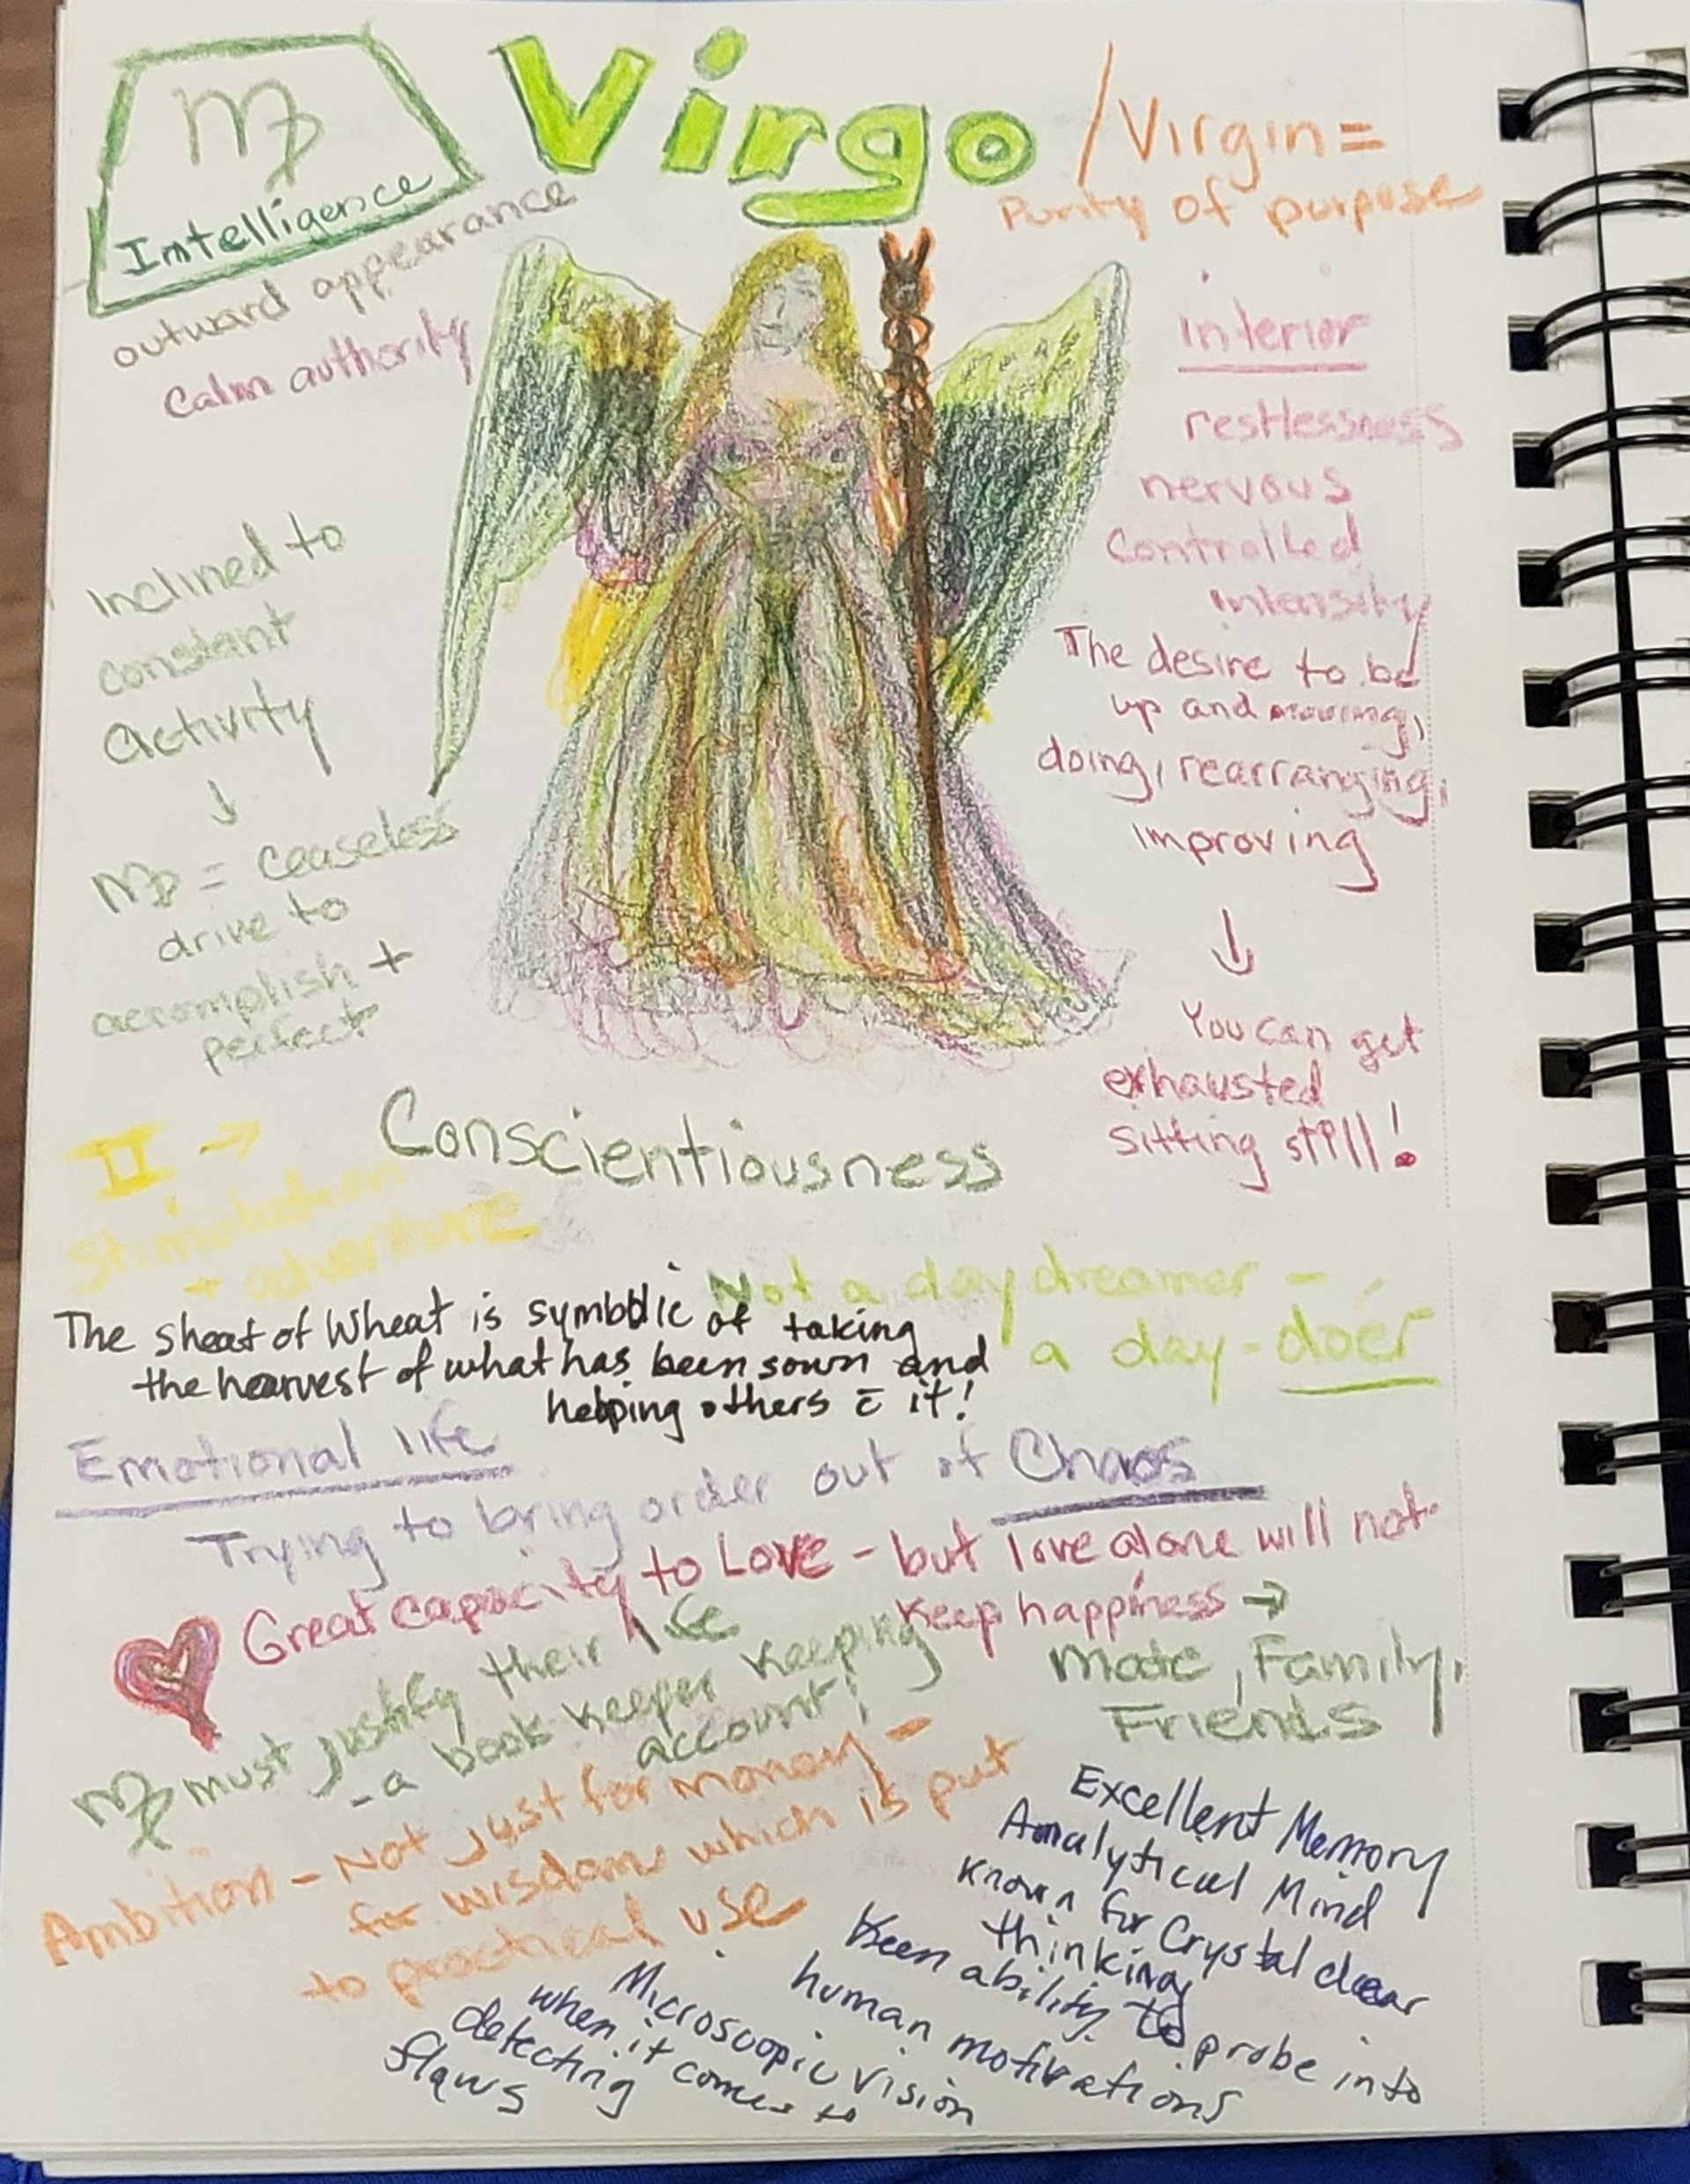 ♍
Intelligence
Virgo
/Virgin =
Purity of purpose
outward appearance
Calm authority
interior
restlessness
nervous
Controlled
intensity
The desire to be
up and moving,
doing, rearranging,
improving
↓
You can get
exhausted
sitting still!
Inclined to
constant
activity
↓
♍ = ceaseless
drive to
accomplish +
perfect
Conscientiousness
II →
Stimulation
+ adventure
Not a day dreamer –
a day-doer
The sheaf of Wheat is symbolic of taking
the hearvest of what has been sown and
helping others c̄ it!
Emotional life
Trying to bring order out of Chaos
Great capacity to Love – but love alone will not
keep happiness →
Mate, Family,
Friends
♍ must justify their life
– a book keeper keeping
account!
Ambition – Not just for money –
for wisdom which is put
to practical use
Excellent Memory
Analytical Mind
Known for Crystal clear
thinking
Keen ability to probe into
human motivations
Microscopic vision
when it comes to
detecting
flaws